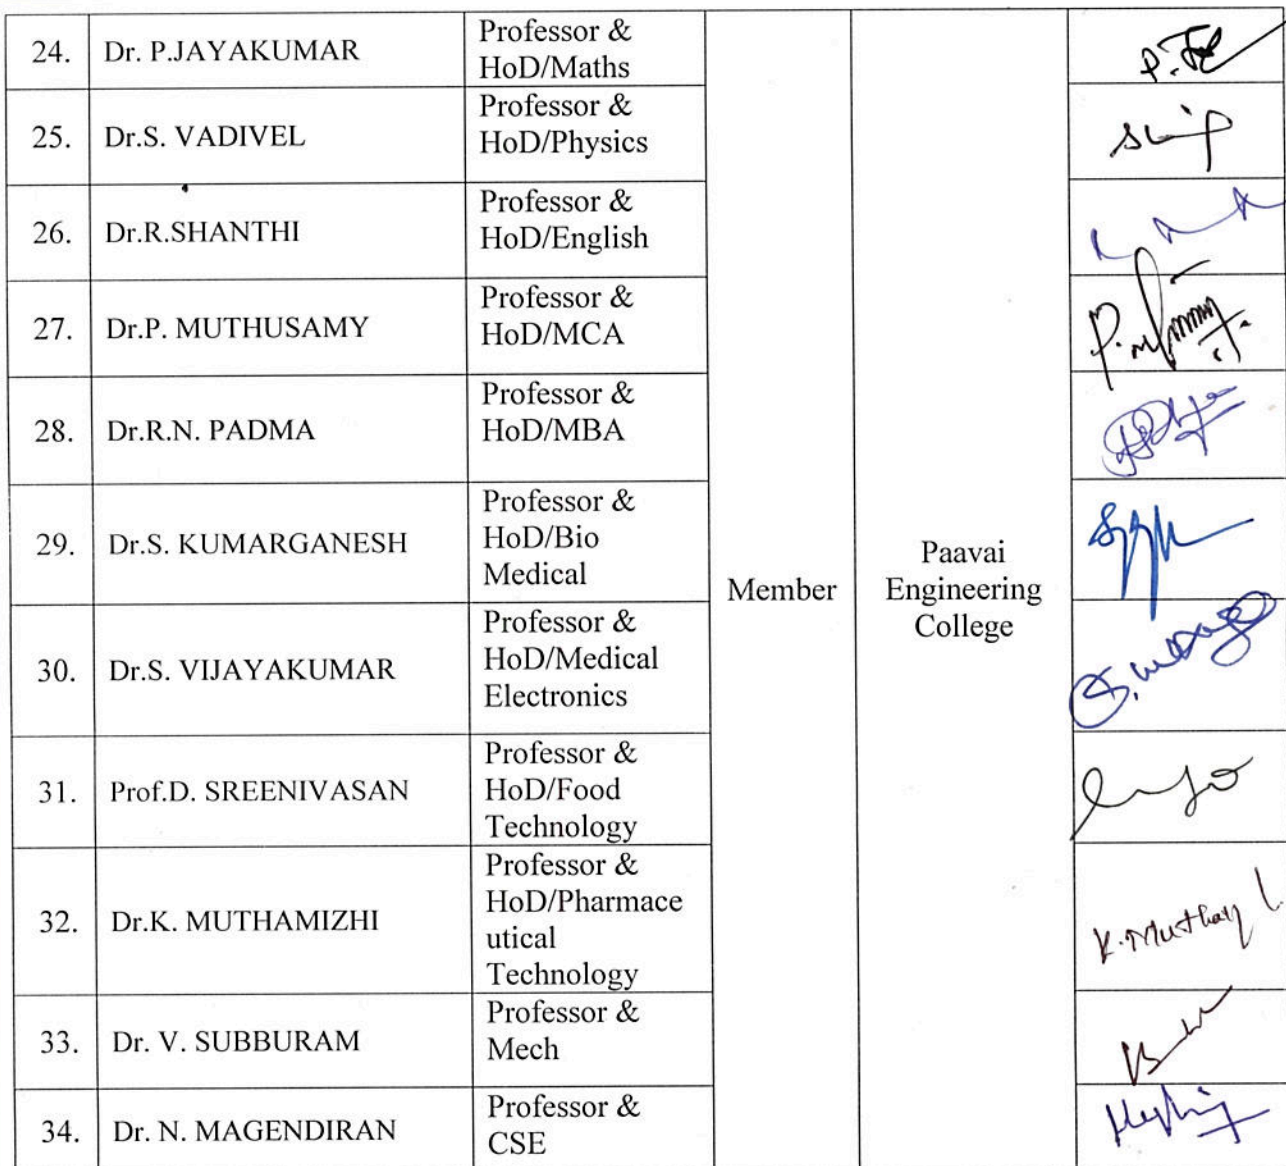 24. Dr. P.JAYAKUMAR Professor &
HoD/Maths
25. Dr.S. VADIVEL Professor &
HoD/Physics
26. Dr.R.SHANTHI Professor &
HoD/English
27. Dr.P. MUTHUSAMY Professor &
HoD/MCA
28. Dr.R.N. PADMA Professor &
HoD/MBA
29. Dr.S. KUMARGANESH Professor &
HoD/Bio
Medical
Member
Paavai
Engineering
College
30. Dr.S. VIJAYAKUMAR Professor &
HoD/Medical
Electronics
31. Prof.D. SREENIVASAN Professor &
HoD/Food
Technology
32. Dr.K. MUTHAMIZHI Professor &
HoD/Pharmace
utical
Technology
33. Dr. V. SUBBURAM Professor &
Mech
34. Dr. N. MAGENDIRAN Professor &
CSE